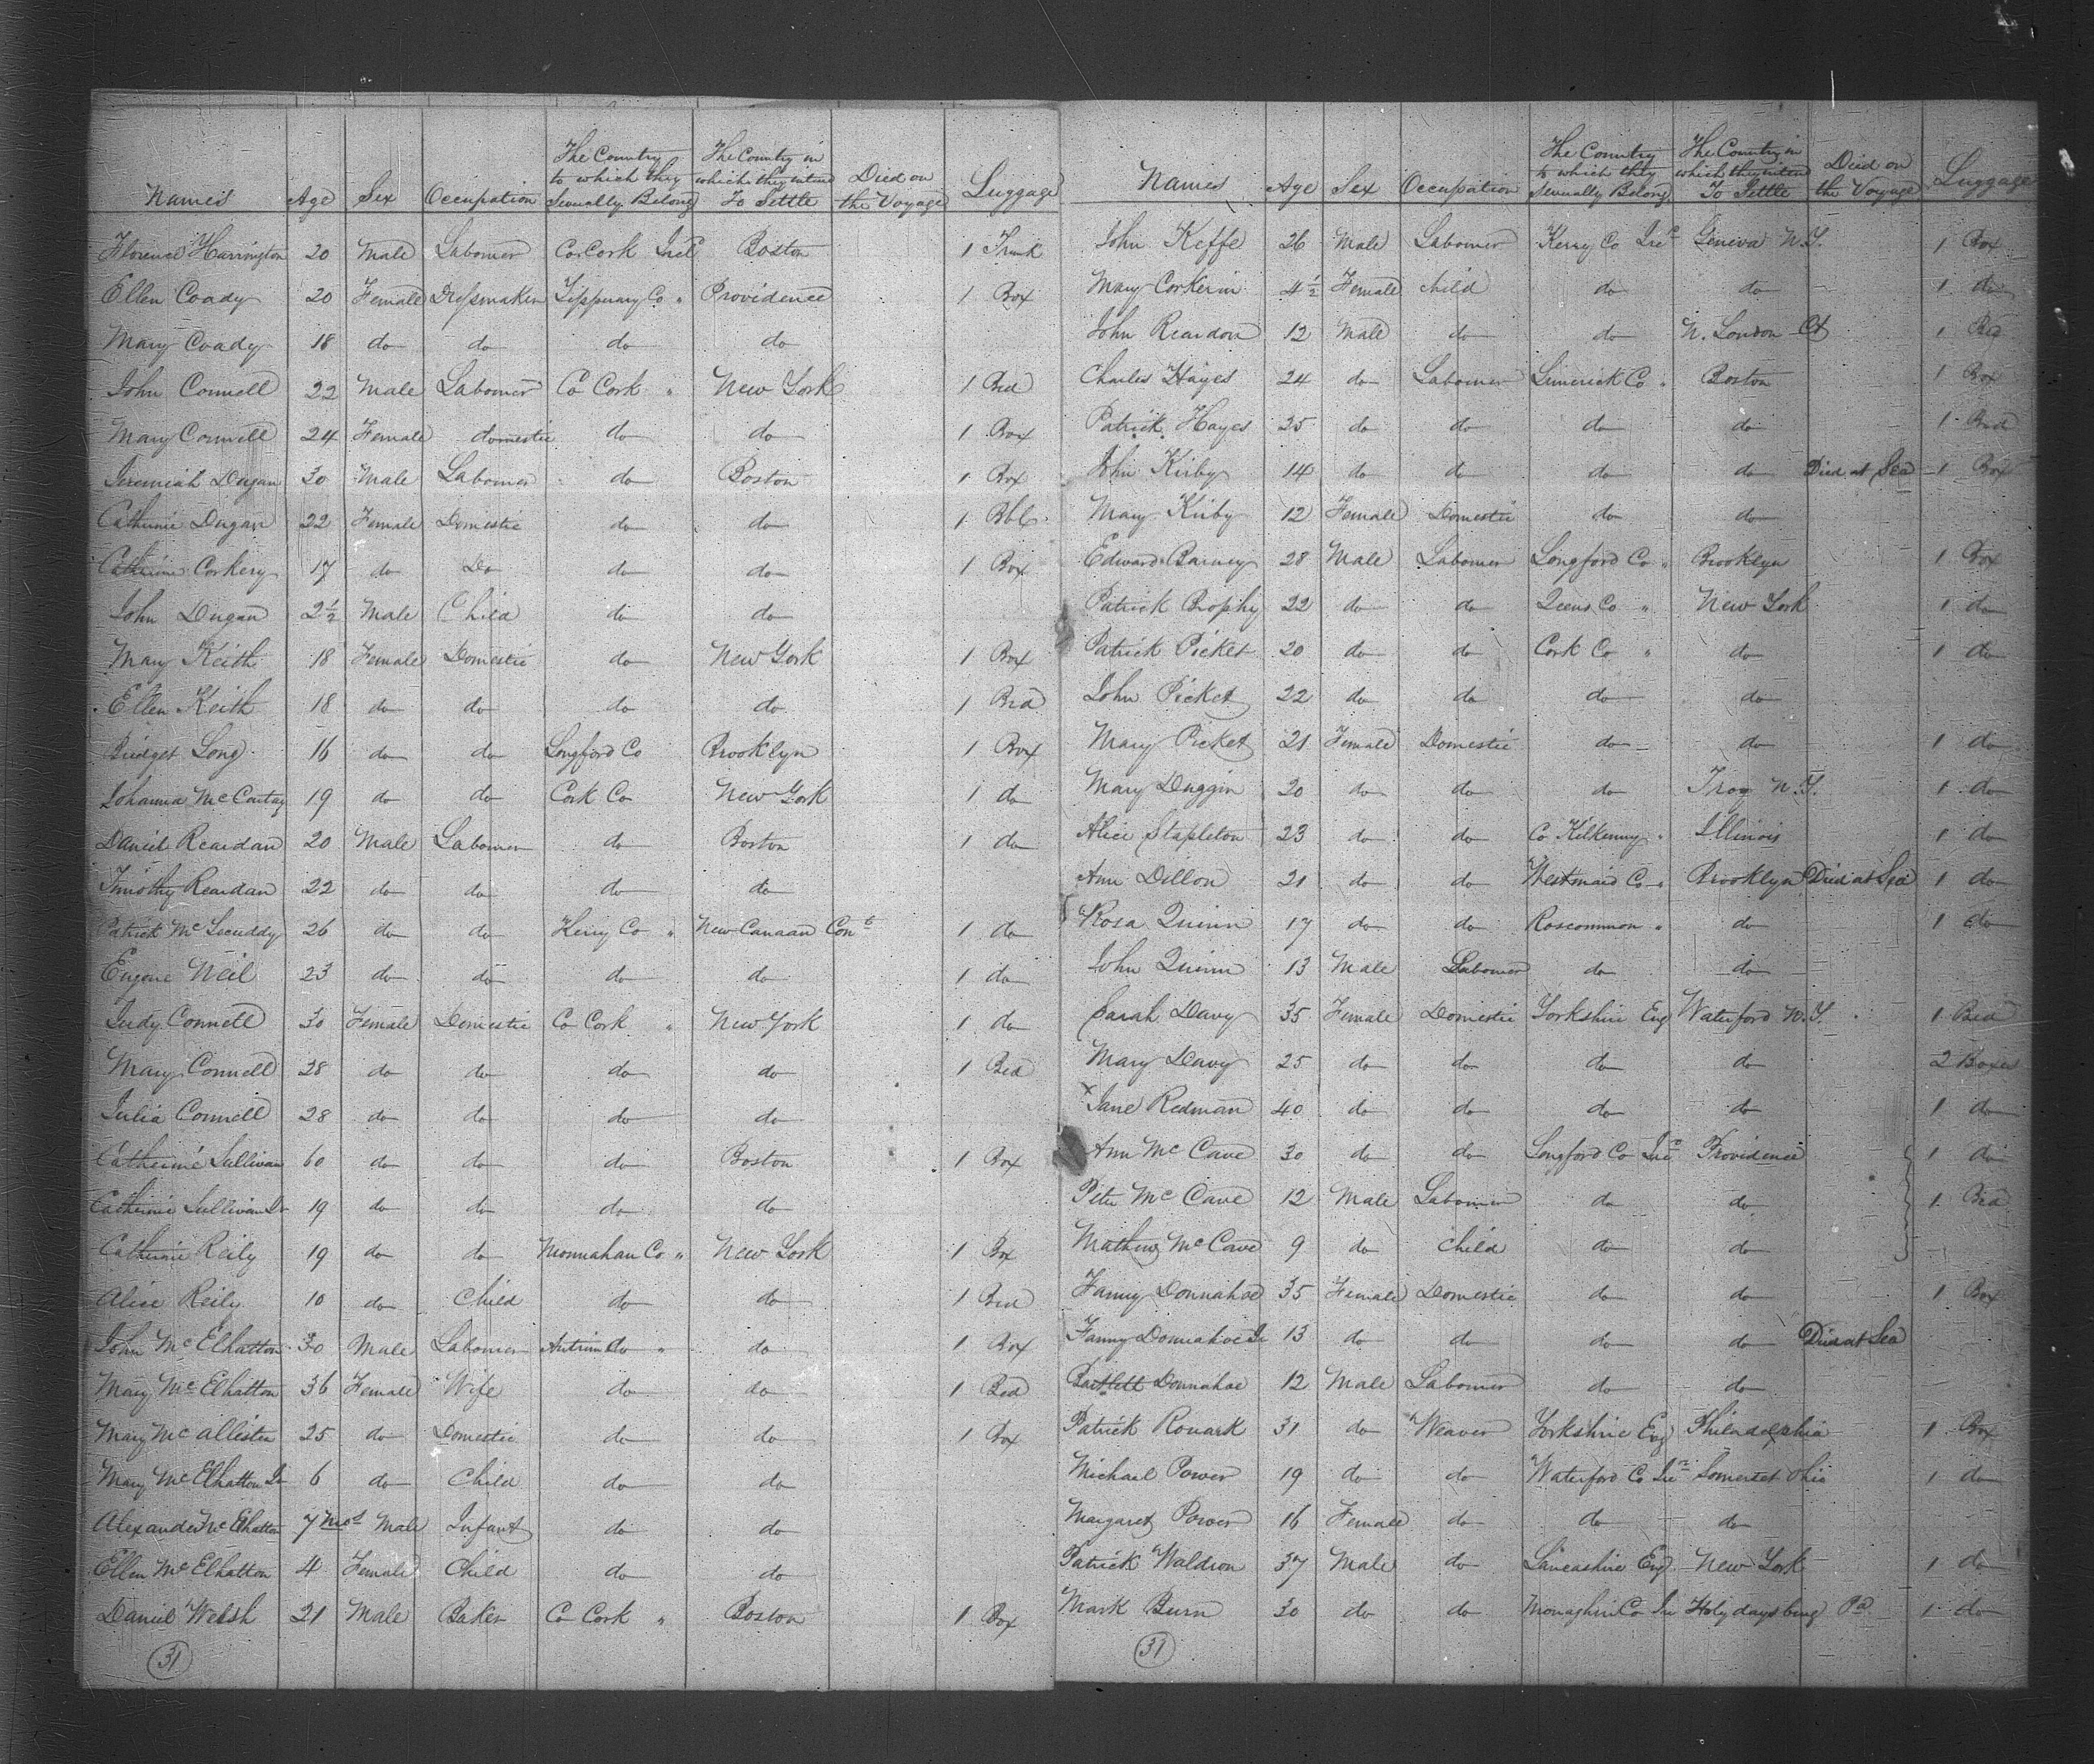 Names Age Sex Occupation The Country to which they Severally Belong The Country in which they intend To Settle Died on the Voyage Luggage
Florence Harrington 20 Male Labourer Co Cork Irel Boston 1 Trunk
Ellen Coady 20 Female Dressmaker Tipperary Co " Providence 1 Box
Mary Coady 18 do do do do
John Connell 22 Male Labourer Co Cork " New York 1 Bed
Mary Connell 24 Female domestic do do 1 Box
Jeremiah Dugan 30 Male Labourer do Boston 1 Box
Catherine Dugan 22 Female Domestic do do 1 Bbl.
Catherine Corkery 17 do Do do do 1 Box
John Dugan 2½ Male Child do do
Mary Keith 18 Female Domestic do New York 1 Box
Ellen Keith 18 do do do do 1 Bed
Bridget Long 16 do do Longford Co Brooklyn 1 Box
Johanna McCartay 19 do do Cork Co New York 1 do
Daniel Reardan 20 Male Labourer do Boston 1 do
Timothy Reardan 22 do do do do
Patrick Mc 26 do do Kerry Co " New Canaan Cont 1 do
Eugene Neil 23 do do do do 1 do
Judy Connell 30 Female Domestic Co Cork " New York 1 do
Mary Connell 28 do do do do 1 Bed
Julia Connell 28 do do do do
Catherine Sullivan 60 do do do Boston 1 Box
Catherine Sullivan Jr 19 do do do do
Catherine Reily 19 do do Monnahan Co " New York 1 Box
Alice Reily 10 do Child do do 1 Bed
John McElhatton 30 Male Labourer Antrim Co " do 1 Box
Mary McElhatton 36 Female Wife do do 1 Bed
Mary McAllister 25 do Domestic do do 1 Box
Mary McElhatton Jr 6 do Child do do
Alexander McElhatton 7 Mos Male Infant do do
Ellen McElhatton 4 Female Child do do
Daniel Welsh 21 Male Baker Co Cork " Boston 1 Box
31
Names Age Sex Occupation The Country to which they Severally Belong The Country in which they intend To Settle Died on the Voyage Luggage
John Keffe 26 Male Labourer Kerry Co Ire Geneva N.Y. 1 Box
Mary Corkerin 4½ Female child do do 1 do
John Reardon 12 Male do do N. London Ct 1 Bed
Charles Hayes 24 do Labourer Limerick Co " Boston 1 Box
Patrick Hayes 25 do do do do 1 Bed
John Kirby 14 do do do do Died at Sea 1 Box
Mary Kirby 12 Female Domestic do do
Edward Barney 28 Male Labourer Longford Co " Brooklyn 1 Box
Patrick Brophy 22 do do Qeens Co " New York 1 do
Patrick Picket 20 do do Cork Co " do 1 do
John Picket 22 do do do do
Mary Picket 21 Female Domestic do do 1 do
Mary Duggin 20 do do do Troy N.Y. 1 do
Alice Stapleton 23 do do Co Kilkenny " Illinois 1 do
Ann Dillon 21 do do Westmaid Co " Brooklyn Died at Sea 1 do
Rosa Quinn 17 do do Roscommon " do 1 do
John Quinn 13 Male Labourer do do
Sarah Davy 35 Female Domestic Yorkshire Eng Waterford N.Y. 1 Bed
Mary Davy 25 do do do do 2 Boxes
x Jane Redman 40 do do do do 1 do
Ann McCave 30 do do Longford Co Ire Providence 1 do
Peter McCave 12 Male Labourer do do 1 Bed
Mathew McCave 9 do child do do
Fanny Donnahoe 35 Female Domestic do do 1 Box
Fanny Donnahoe Jr 13 do do do do Died at Sea
Bartlett Donnahoe 12 Male Labourer do do
Patrick Rouark 31 do Weaver Yorkshire Eng Philadelphia 1 Box
Michael Power 19 do do Waterford Co Ire Somerset Ohio 1 do
Margaret Power 16 Female do do do
Patrick Waldron 37 Male do Lancashire Eng New York 1 do
Mark Burn 30 do do Monaghin Co Ire Holydaysburg Pa 1 do
31